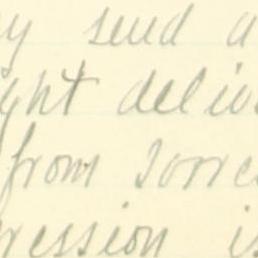 y send a
ght deliv
from Torre
ression is